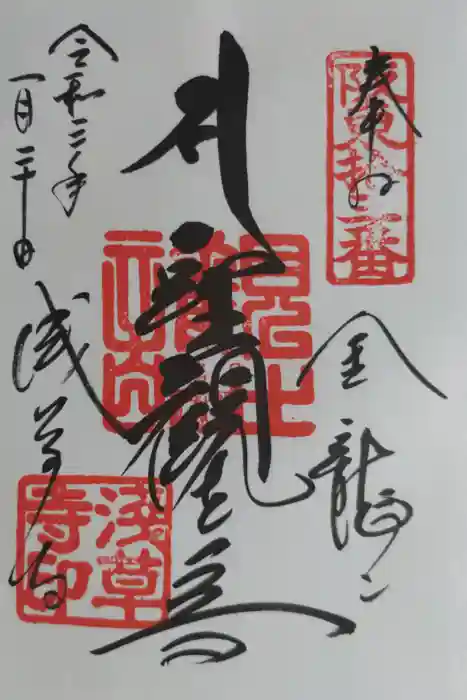 奉拝
坂東拾三番
金龍山
聖観世音
浅草寺
浅草寺印
令和三年
一月二十日